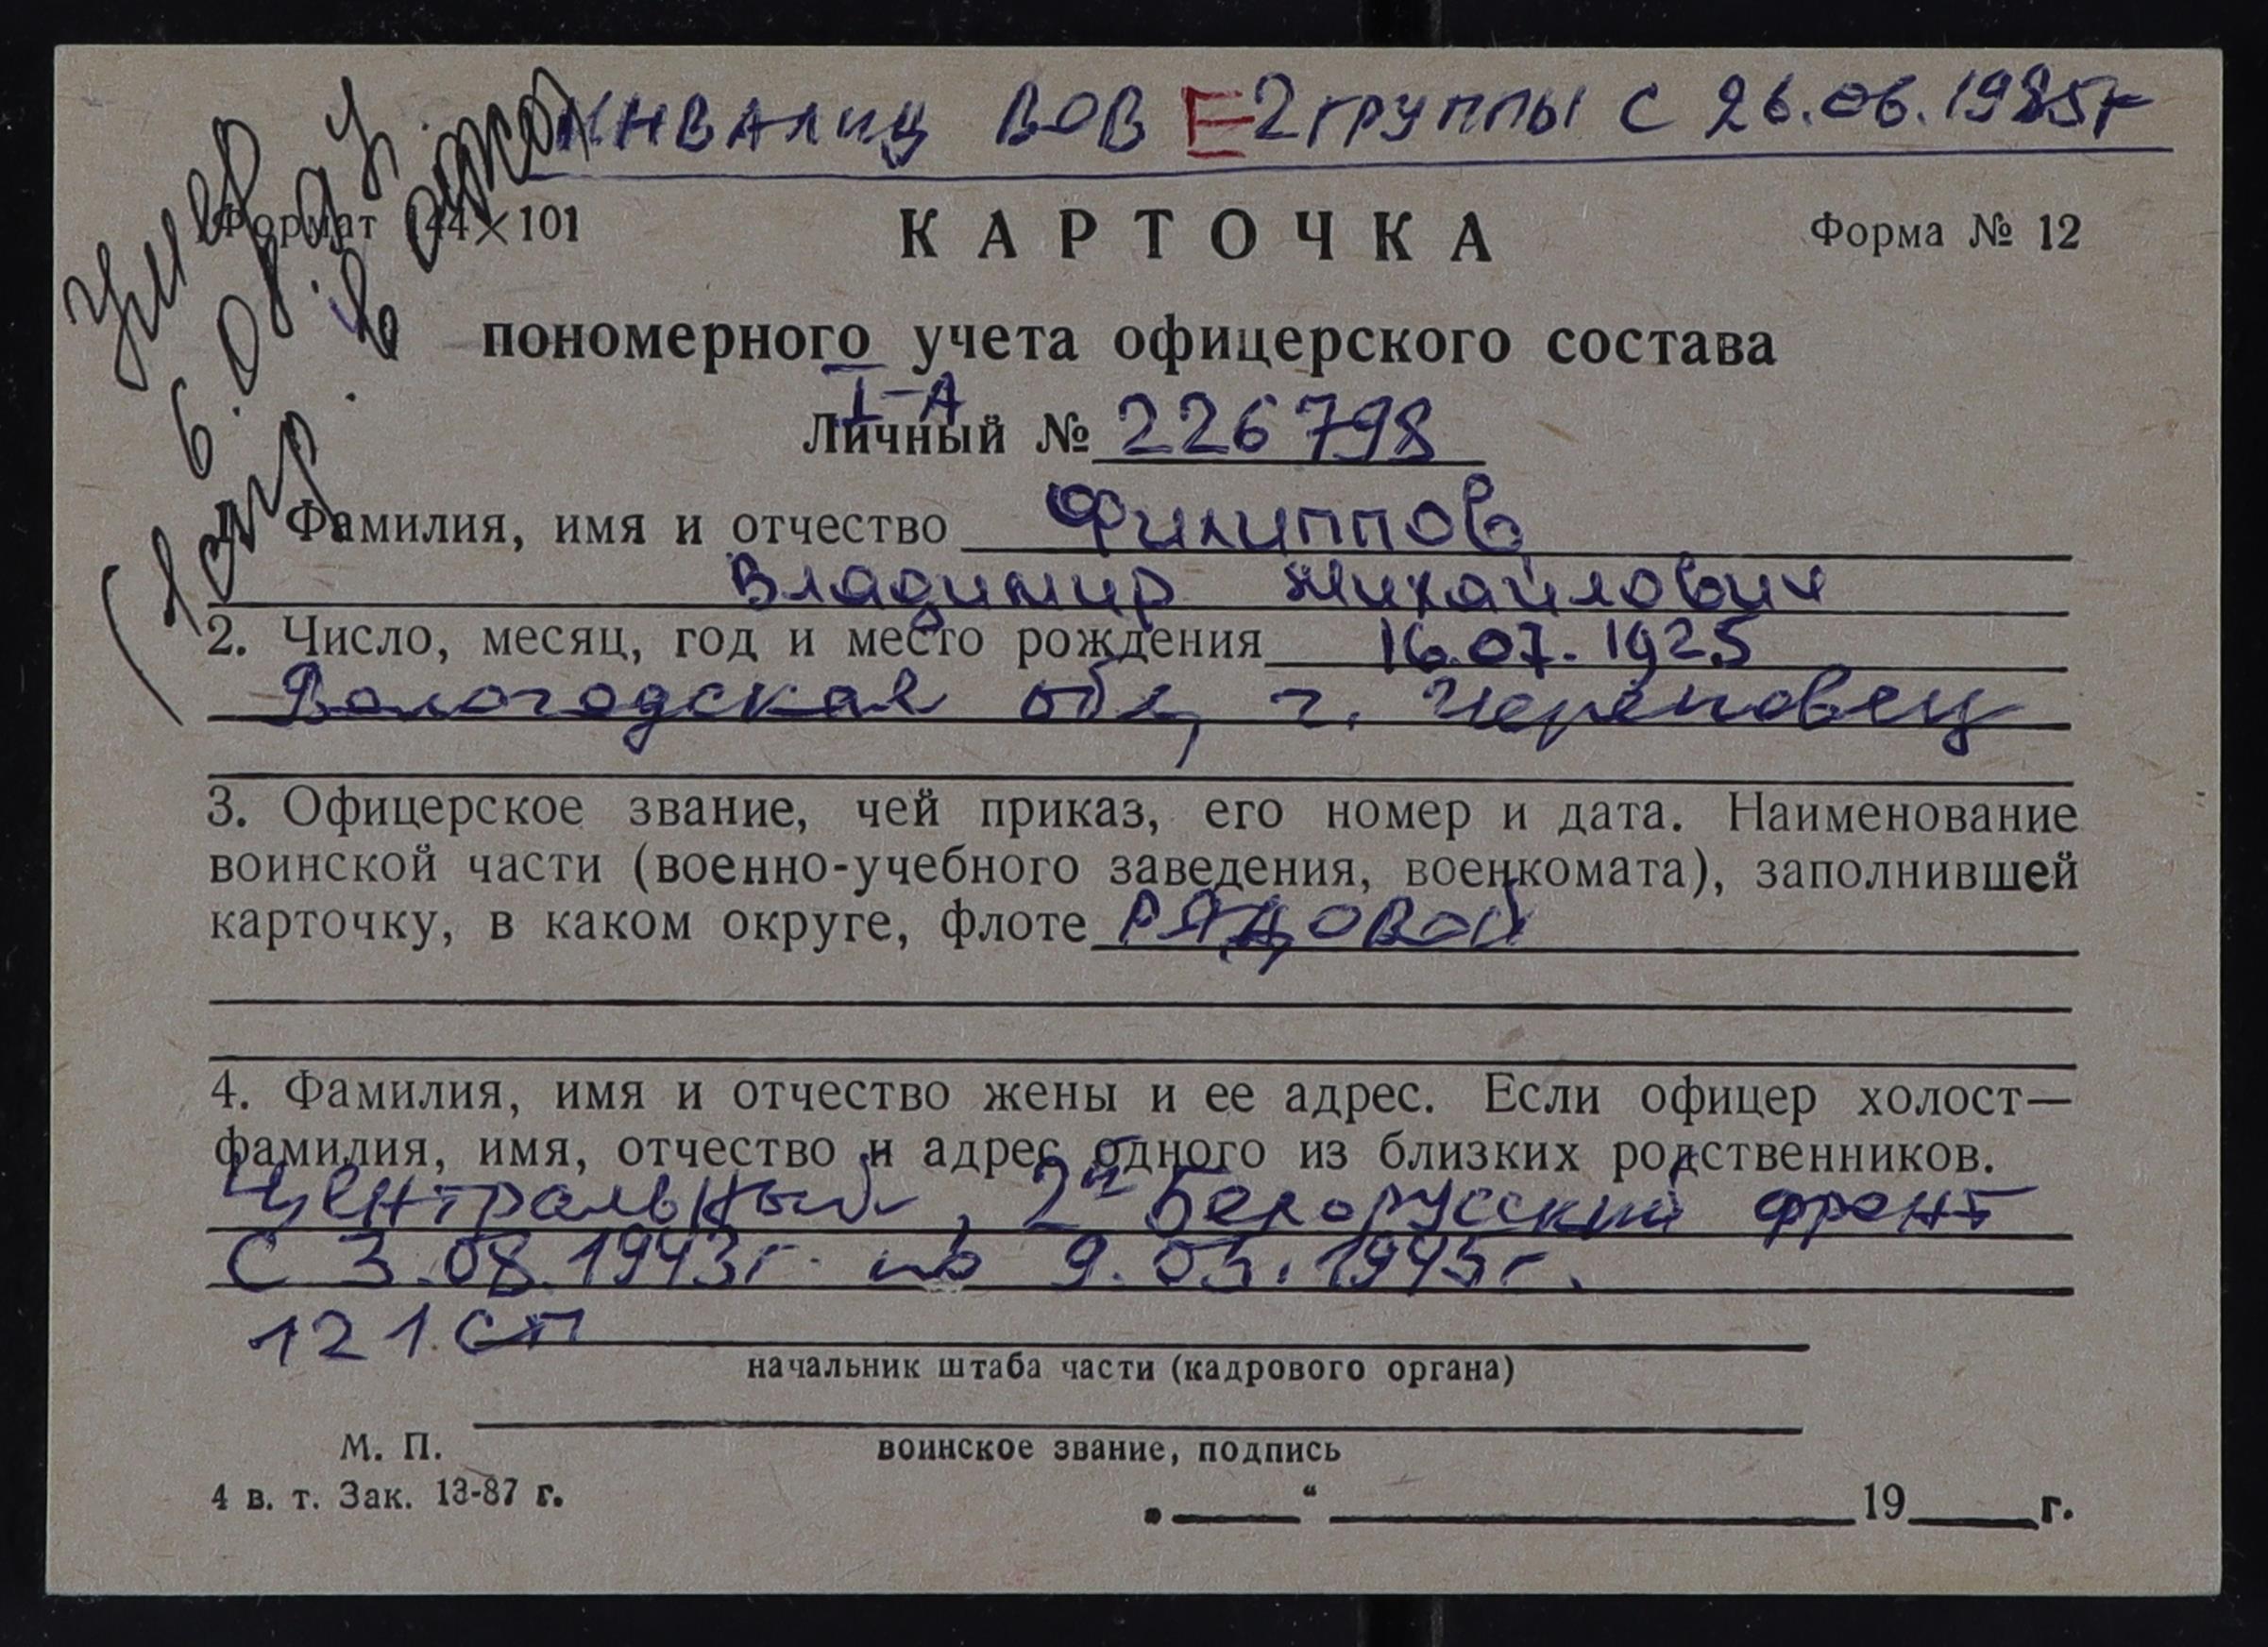 ИНВАЛИД ВОВ Е 2 группы с 26.06.1985г
Умер
6.08.94.
в отст
Формат 144×101
КАРТОЧКА
Форма № 12
пономерного учета офицерского состава
I-А
Личный № 226798
1. Фамилия, имя и отчество Филиппов
Владимир Михайлович
2. Число, месяц, год и место рождения 16.07.1925
Вологодская обл, г. Череповец
3. Офицерское звание, чей приказ, его номер и дата. Наименование
воинской части (военно-учебного заведения, военкомата), заполнившей
карточку, в каком округе, флоте РЯДОВОЙ
4. Фамилия, имя и отчество жены и ее адрес. Если офицер холост—
фамилия, имя, отчество и адрес одного из близких родственников.
Центральный, 2й Белорусский фронт
С 3.08.1943г. по 9.05.1945г.
121 СП
начальник штаба части (кадрового органа)
М. П.
воинское звание, подпись
4 в. т. Зак. 13-87 г.
„ “ 19 г.